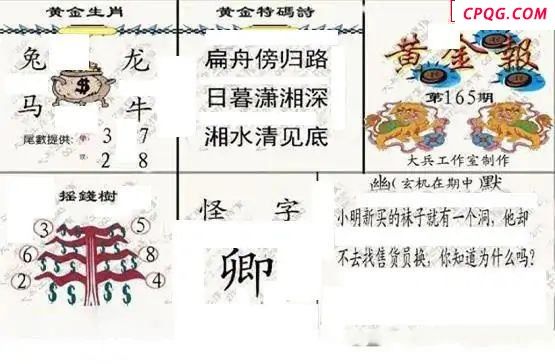 CPQG.COM
黄金生肖
兔 龙
马 牛
尾數提供: 3 7
2 8
黄金特碼詩
扁舟傍归路
日暮潇湘深
湘水清见底
黄金報
第165期
大兵工作室制作
摇錢樹
③ ⑤
⑥ ⑧
② ④
怪 字
卿
幽(玄机在期中)默
小明新买的袜子就有一个洞，他却
不去找售货员换，你知道为什么吗?